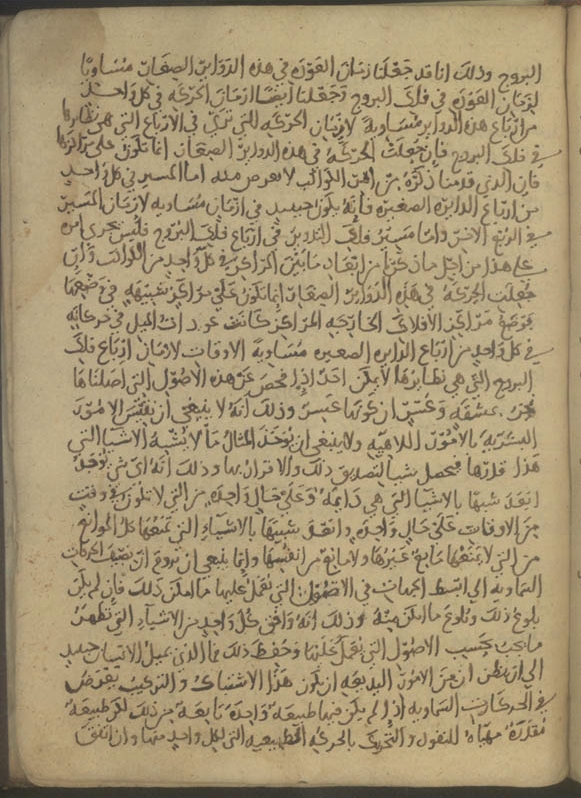 البروج وذلك انا قد جعلنا زمان العوده في هذه الدوائر الصغار مساويا
لزمان العوده في فلك البروج وجعلنا ايضا ازمان الحركه في كل واحد
من ارباع هذه الدوائر مساويه لازمان الحركه التي ترى في الارباع التي هي نظايرها
في فلك البروج فان جعلت الحركه في هذه الدوائر الصغار انما تكون على مراكزها
فان الذي قدمنا ذكره من امر الكواكب لا يعرض منه اما المسير في كل واحد
من ارباع الدايره الصغيره فانه يكون حينيد في ازمان مساويه لازمان المسير
في الربع الاخر واما مسير فلك التدوير في ارباع فلك البروج فليس يجري امره
على هذا من اجل ما ذكرنا من ابعاد ما بين المراكز في كل واحد من الكواكب وان
جعلت الحركه في هذه الدوائر الصغار انما تكون على مراكز شبيهه في وضعها
بوضع مراكز الافلاك الخارجه المراكز كانت عودات الميل في حركاته
في كل واحد من ارباع الدايره الصغيره مساويه الاوقات لازمان ارباع فلك
البروج التي هي نظايرها لا يمكن احد اذا فحص عن هذه الاصول التي اصلناها
نحن عسقه وعسر ان عونها عسر وذلك انه لا ينبغي ان نقيس الامور
البشريه بالامور اللاهيه ولا ينبغي ان يوخذ المثال مما لا يشبه الاشيا التي
هذا قدرها فيحصل شيا لتصديق ذلك والاقران بها وذلك انه اي شي يوجد
ابعد شبها بالاشيا التي هي دايمه وعلى حال واحده من التي لا تكون في وقت
من الاوقات على حال واحده وابعد شبيها بالاشياء التي يمنعها كل الموانع
من التي لا يمنعها مانع غيرها ولا مانع من انفسها وانما ينبغي ان نروم ان نضيف الحركات
السماويه الى ابسط الجهات في الاصول التي يعمل عليها ما امكن ذلك فان لم يكن
بلوغ ذلك وبلوغ ما امكن منه وذلك انه وافق كل واحد من الاشياء التي تظهر
ما يجب بحسب الاصول التي يعمل عليها وحفظ ذلك فما الذي يميل الانسان حينيد
الى ان يظن ان من الامور البديعه ان يكون هذا الاشتباك والتركيب يعرض
في الحركات السماويه اذ لم يكن فيها طبيعه واحده مانعه من ذلك لكن طبيعه
مقدره مهياه للنفول والتحرك بالحركه الطبيعيه التي لكل واحد منها وان اتفق